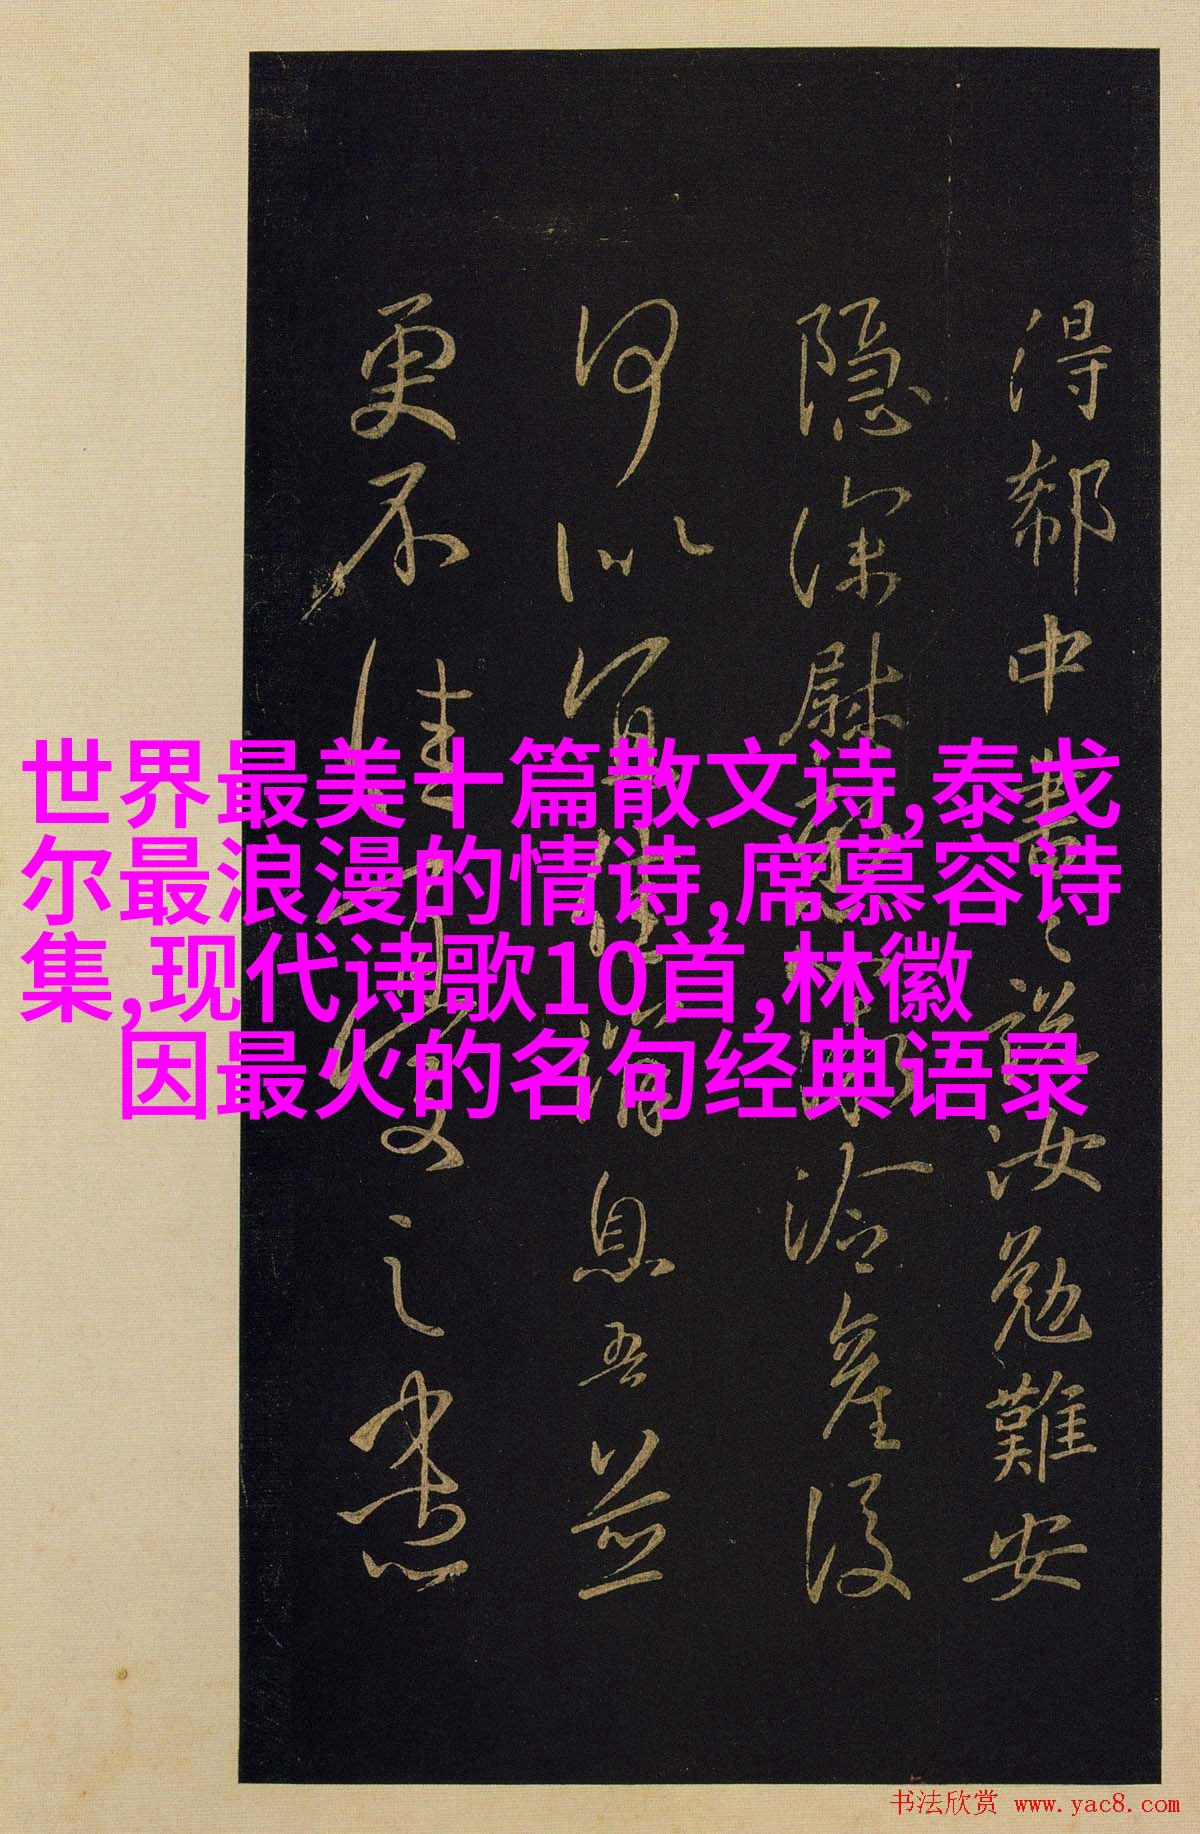 得郗中書〻說汝勉難安
隱深慰冷產後
何以消息吾並
更不佳之
世界最美十篇散文诗,泰戈
尔最浪漫的情诗,席慕容诗
集,现代诗歌10首,林徽
因最火的名句经典语录
书法欣赏 www.yac8.com